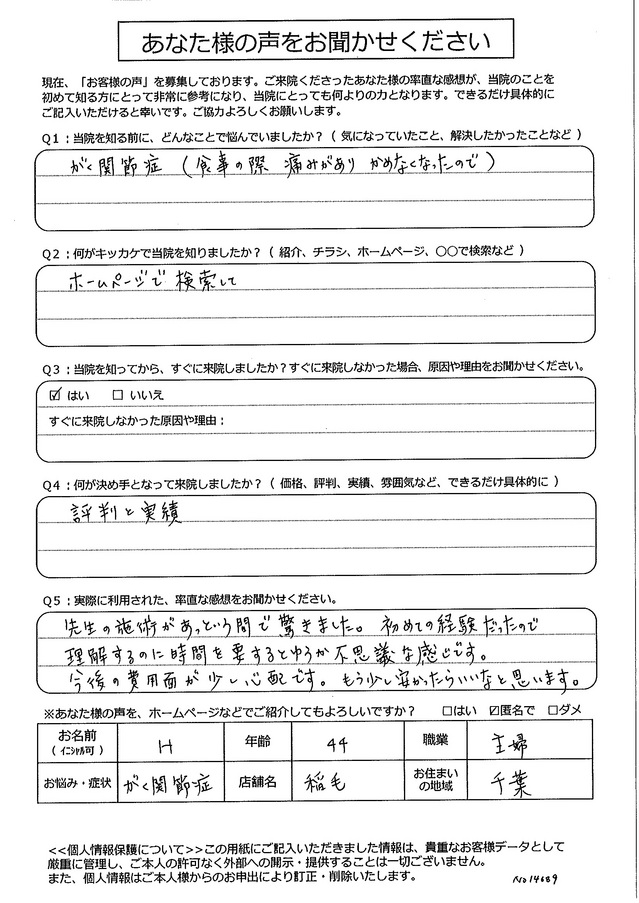 あなた様の声をお聞かせください
現在、「お客様の声」を募集しております。ご来院くださったあなた様の率直な感想が、当院のことを
初めて知る方にとって非常に参考になり、当院にとっても何よりの力となります。できるだけ具体的に
ご記入いただけると幸いです。ご協力よろしくお願いします。
Q1：当院を知る前に、どんなことで悩んでいましたか？（ 気になっていたこと、解決したかったことなど ）
がく関節症 （食事の際 痛みがあり かめなくなったので）
Q2：何がキッカケで当院を知りましたか？（ 紹介、チラシ、ホームページ、○○で検索など ）
ホームページで 検索して
Q3：当院を知ってから、すぐに来院しましたか？すぐに来院しなかった場合、原因や理由をお聞かせください。
☑ はい □ いいえ
すぐに来院しなかった原因や理由：
Q4：何が決め手となって来院しましたか？（ 価格、評判、実績、雰囲気など、できるだけ具体的に ）
評判と実績
Q5：実際に利用された、率直な感想をお聞かせください。
先生の施術があっという間で驚きました。初めての経験だったので
理解するのに時間を要するとゆうか不思議な感じです。
今後の費用面が少し心配です。もう少し安かったらいいなと思います。
※あなた様の声を、ホームページなどでご紹介してもよろしいですか？ □はい ☑匿名で □ダメ
お名前 （ｲﾆｼｬﾙ可） H 年齢 44 職業 主婦
お悩み・症状 がく関節症 店舗名 稲毛 お住まいの地域 千葉
<<個人情報保護について>>この用紙にご記入いただきました情報は、貴重なお客様データとして
厳重に管理し、ご本人の許可なく外部への開示・提供することは一切ございません。
また、個人情報はご本人様からのお申出により訂正・削除いたします。
No14689